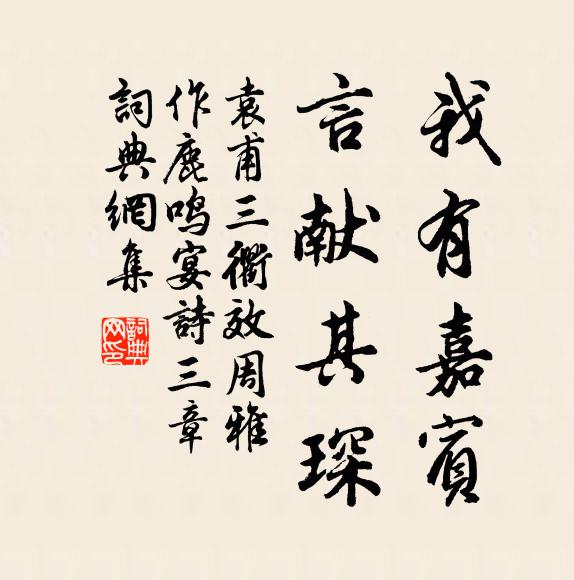 我有嘉賓
言献其琛
袁甫三衢效周雅
作鹿鸣宴詩三章
詞典網集
詞典網印